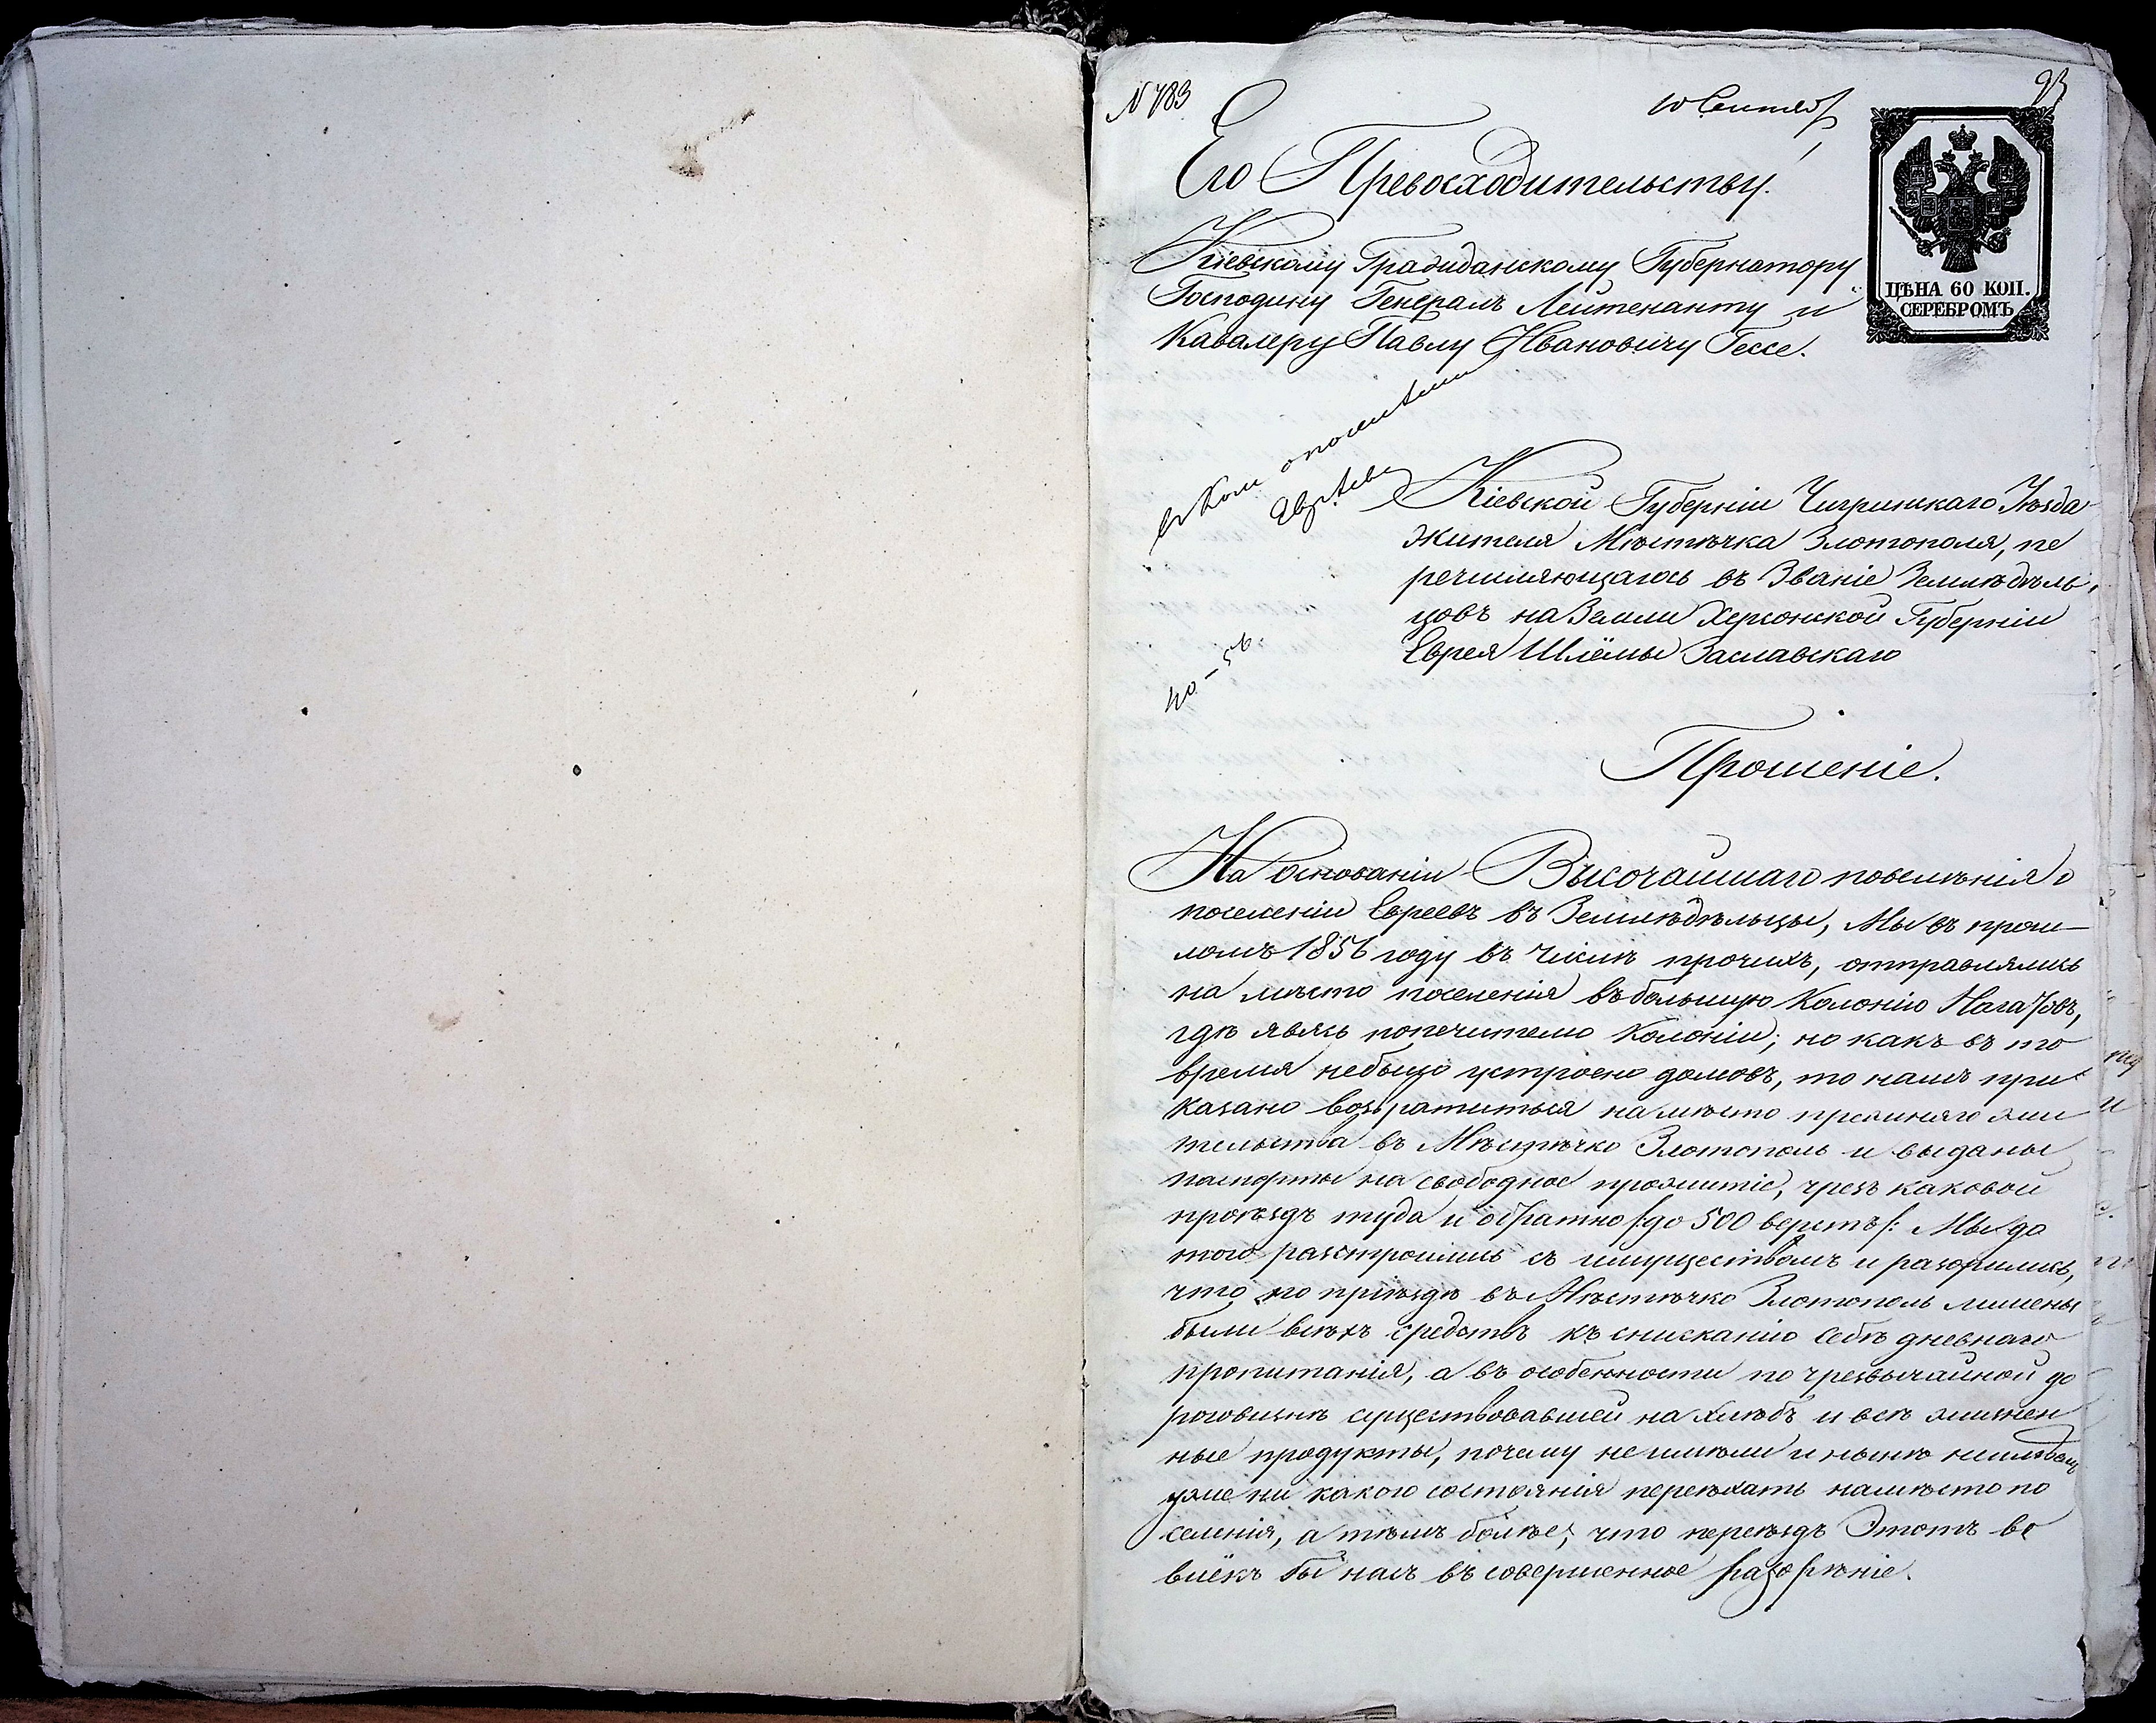 N 783
10 Сентяб
93
Его Превосходительству!
ЦѢНА 60 КОП.
СЕРЕБРОМЪ
Кіевскому Гражданскому Губернатору
Господину Генералъ Лейтенанту и
Кавалеру Павлу Ивановичу Гессе.
о поселеніи
Евреевъ
Кіевской Губерніи Чигринскаго Уѣзда
жителя Мѣстѣчка Златополя, пе
речисляющагось въ Званіе Землѣдѣль,
цовъ на Земли Херсонской Губерніи
Еврея Шлёмы Заславскаго
Прошеніе.
На основаніи Высочайшаго повелѣнія о
поселеніи Евреевъ въ Землѣдѣльцы, Мы въ прош-
ломъ 1856 году въ числѣ прочихъ, отправлялись
на мѣсто поселенія въ большую Колонію Нагартовъ,
гдѣ явясь попечителю Колоніи; но какъ въ то
время небыло устроено домовъ, то намъ при
казано возвратиться на мѣсто прежняго жи
тельства въ Мѣстѣчко Злотополь и выданы
паспорты на свободное прожитіе, чрезъ каковой
проѣздъ туда и обратно /:до 500 верстъ/: Мы до
того разстроились съ имуществомъ и разорились,
что по пріѣздѣ въ Мѣстѣчко Злотополь лишены
были всѣхъ средствъ къ снисканію себѣ дневнаго
пропитанія, а въ особенности по чрезвычайной до
роговизнѣ существовавшей на хлѣбъ и всѣ жизнен
ные продукты, почему не имѣли и нынѣ неимѣемъ
уже ни какого состоянія переѣхать на мѣсто по
селенія, а тѣмъ болѣе, что переѣздъ Этотъ во
влёкъ бы насъ въ совершенное разорѣніе.